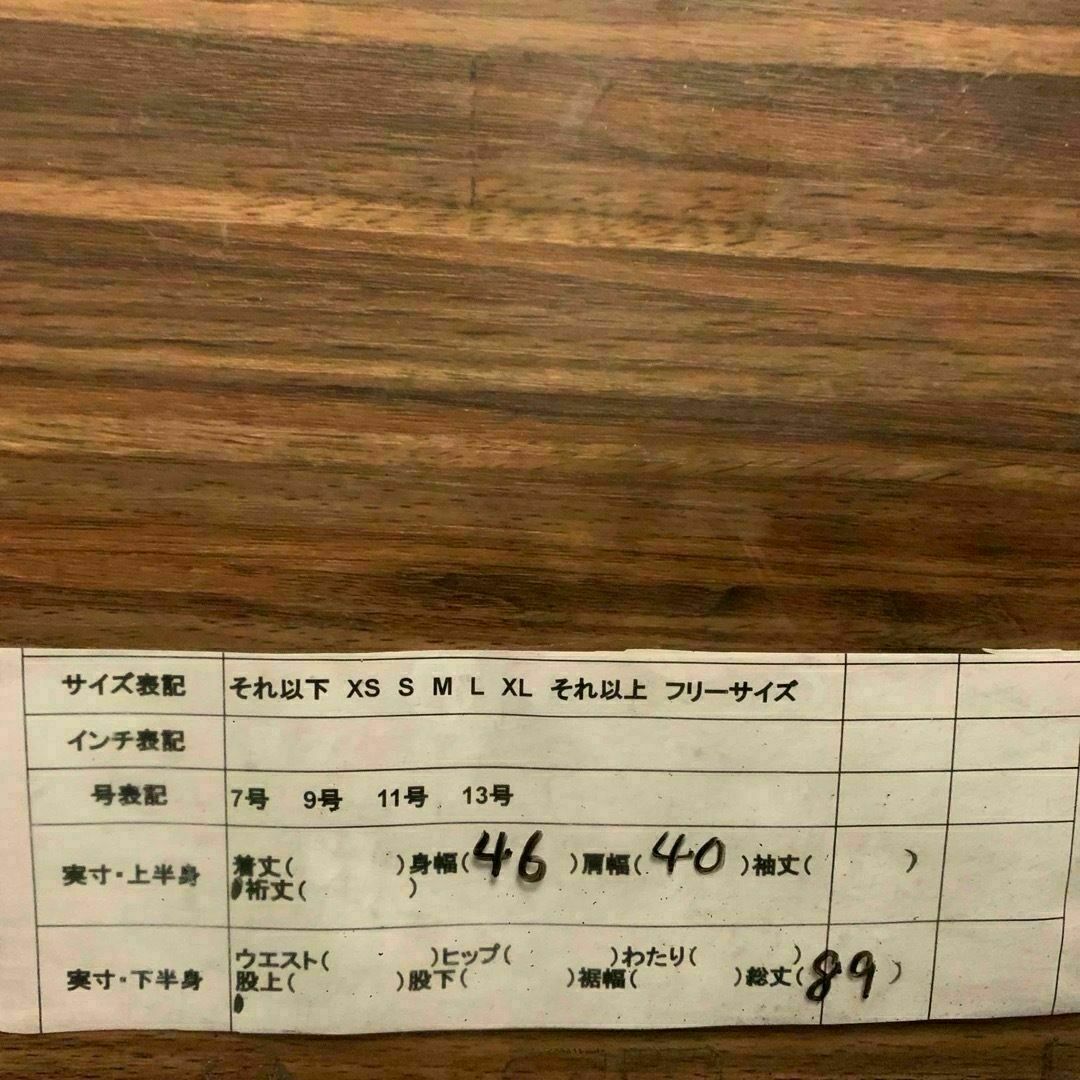 サイズ表記 それ以下 XS S M L XL それ以上 フリーサイズ
インチ表記
号表記 7号 9号 11号 13号
実寸・上半身 着丈( )身幅(46)肩幅(40)袖丈( )
裄丈( )
実寸・下半身 ウエスト( )ヒップ( )わたり( )
股上( )股下( )裾幅( )総丈(89)